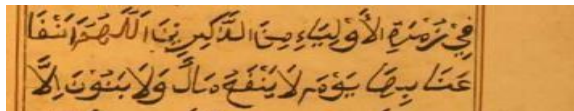 فِيْ زُمْرَةِ الْأَوْلِيَاءِ مِنَ الذَّاكِرِيْنَ اَللّٰهُمَّ انْفَا
عَنَا بِهَا يَوْمَ لَا يَنْفَعُ مَالٌ وَلَا بَنُوْنَ اِلَّا